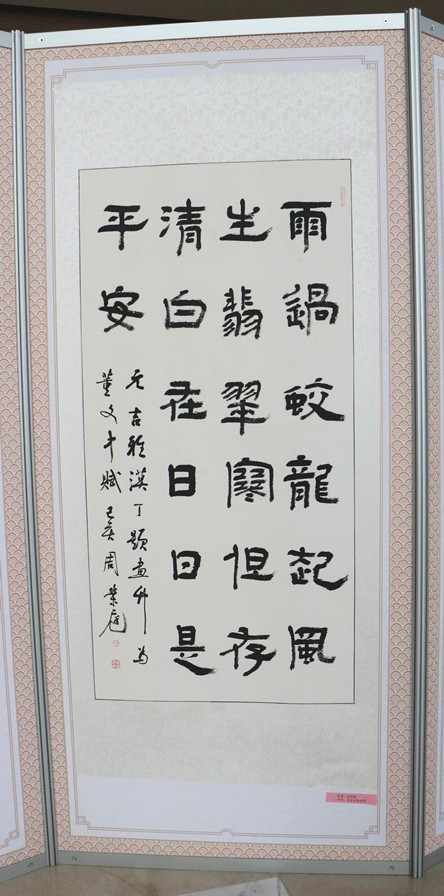 雨過蛟龍起風
生翡翠寒但存
清白在日日是
平安
元吉雅漠丁題畫竹为
董文中賦己亥周業